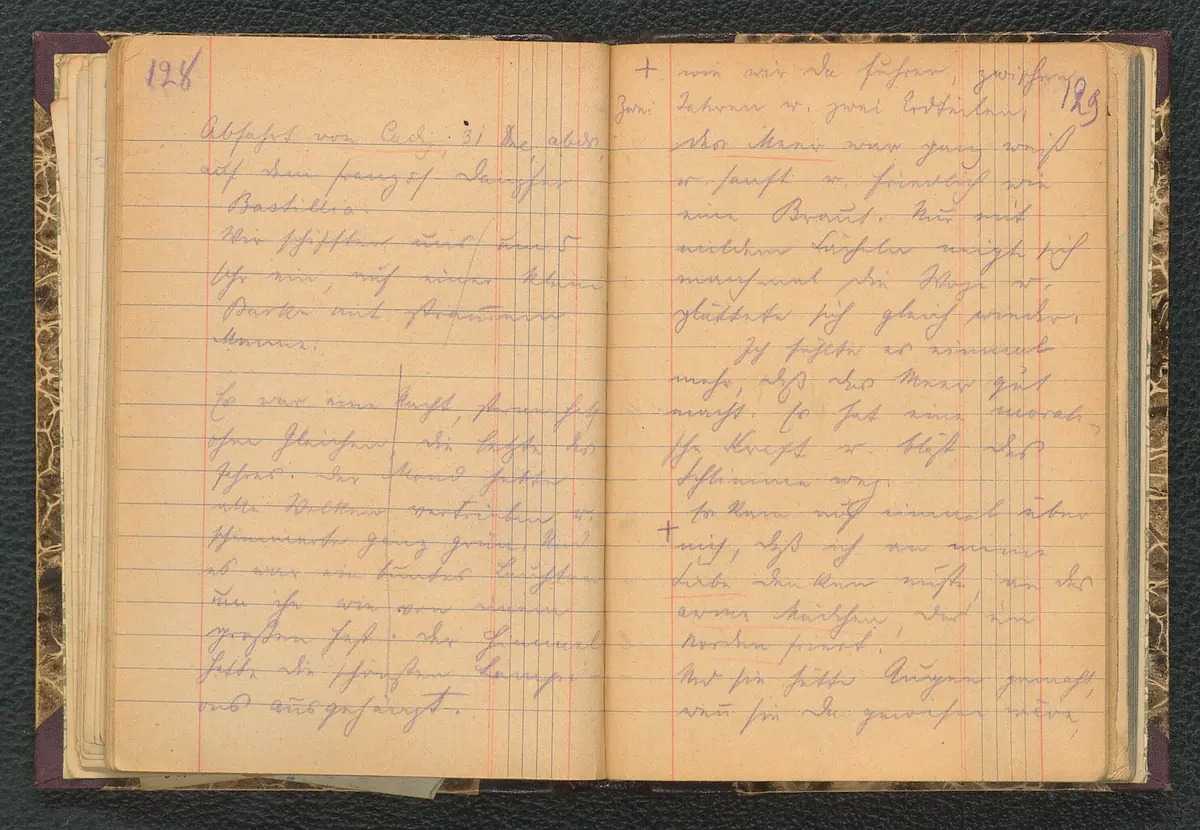 128
Abfahrt von Cadiz, 31 Dec, abds,
auf dem französ. Dampfer
Bastillia.
Wir schifften uns um 5
Uhr ein, auf einer klein
Barke mit strammem
Manne.
Es war eine Nacht, sternenhell
ohne Gleichen, die letzte des
Jahres. Der Mond hatte
alle Wolken vertrieben u.
schimmerte ganz grün. Und
es war ein buntes Leuchten
um ihn wie von einem
großen Fest. Der Himmel
hatte die schönsten Lampi-
ons ausgehängt.
129
+ wie wir da fuhren, zwischen
zwei Jahren u. zwei Erdteilen,
das Meer war ganz weiß
u. sanft u. friedlich wie
eine Braut. Nur mit
mildem Lächeln neigte sich
manchmal die Woge u.
glättete sich gleich wieder.
Ich fühlte es einmal
mehr, daß das Meer gut
macht. Es hat eine morali-
sche Kraft u. bläst das
Schlimme weg.
Es kam auf einmal über
+ mich, daß ich an meine
Liebe denken mußte, an das
arme Mädchen, das im
Norden friert.
Und sie hätte Augen gemacht,
wenn sie da gewesen wäre,